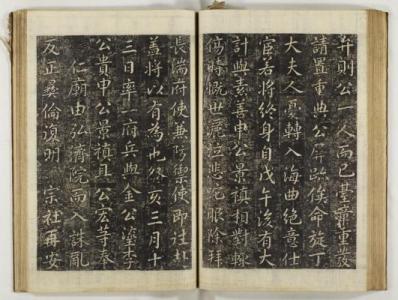 則公一人而已甚重
請置重典公屏跡俟命旋丁
大夫人憂轉入海曲絶意仕
宦若將終身自戊午後有大
計與素善申公景禛相對輒
傷時慨世泣悲咤服除拜
長湍府使兼防禦使即往
蓋將以有為也癸亥三月十
三日率一府兵與金公瑬李
公貴申公景禛具公宏等奉
仁廟由弘濟院而入誅亂
反正彝倫復明 宗社再安